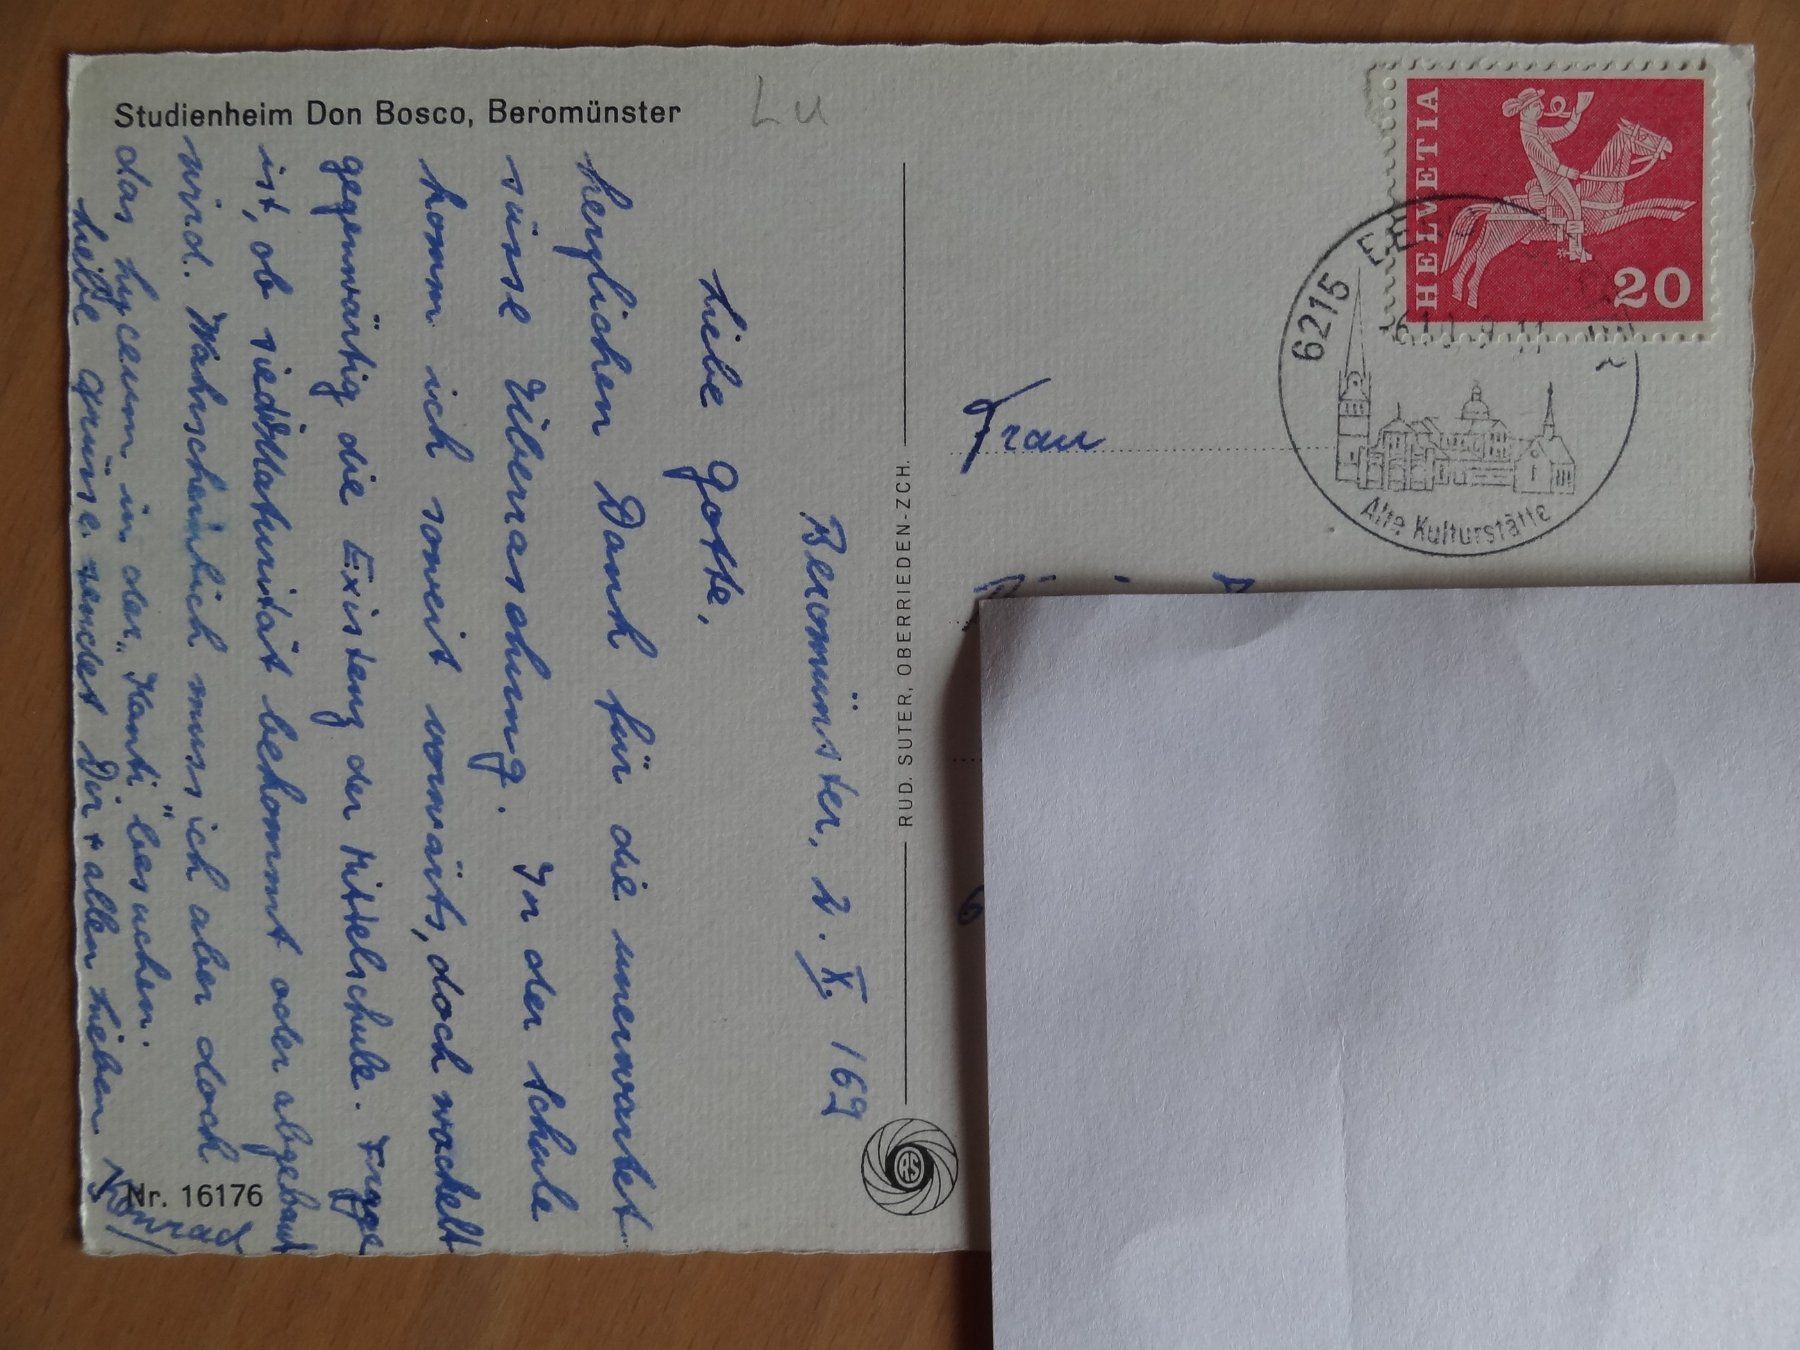 Studienheim Don Bosco, Beromünster
LU
Beromünster, 2. X. 169
Liebe Gotte,
herzlichen Dank für die unerwartet
süsse Überraschung. In der Schule
komm ich soweit vorwärts, doch wackelt
gegenwärtig die Existenz der Mittelschule. Frage
ist, ob sie d'Maturität bekommt oder abgebaut
wird. Wahrscheinlich muss ich aber doch
das Lyceum in der "Kanti" besuchen.
Liebe Grüsse sendet Dir + allen Lieben
Konrad
Nr. 16176
RUD. SUTER, OBERRIEDEN-ZCH.
RS
Frau
HELVETIA
20
6215
Alte Kulturstätte